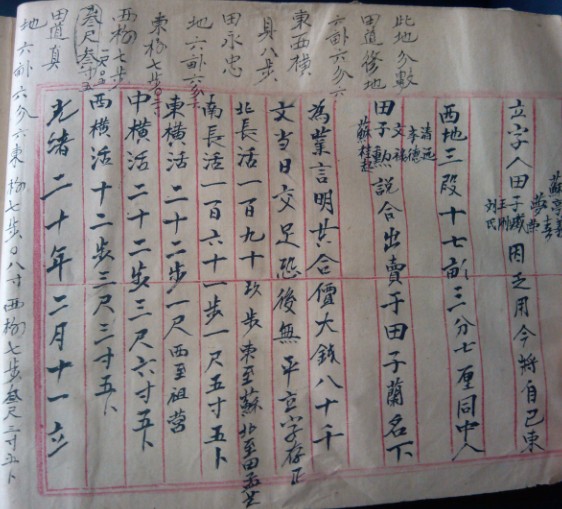 立字人田子盛因乏用今将自己東
西地三段十七畝三分七厘同中人
清远
李德
文福
蘇桂起
田子勲説合出賣于田子蘭名下
為業言明共合價大錢八十千
文當日交足恐後無平立字存正
北長活一百九十玖步東至蘇北至田孟芝
南長活一百六十一步一尺五寸五卜
東横活二十二步一尺西至祖营
中横活二十二步三尺六寸五卜
西横活十二步三尺三寸五卜
光緒二十年二月十一立
此地分数
田道修地
六卧六分六
東西横
具八步
田永忠
地六卧六分六
東杨七步
西杨七步
叁尺叁寸五
田道真
地六卧六分六東杨七步〇八寸西杨七步叁尺二寸五卜